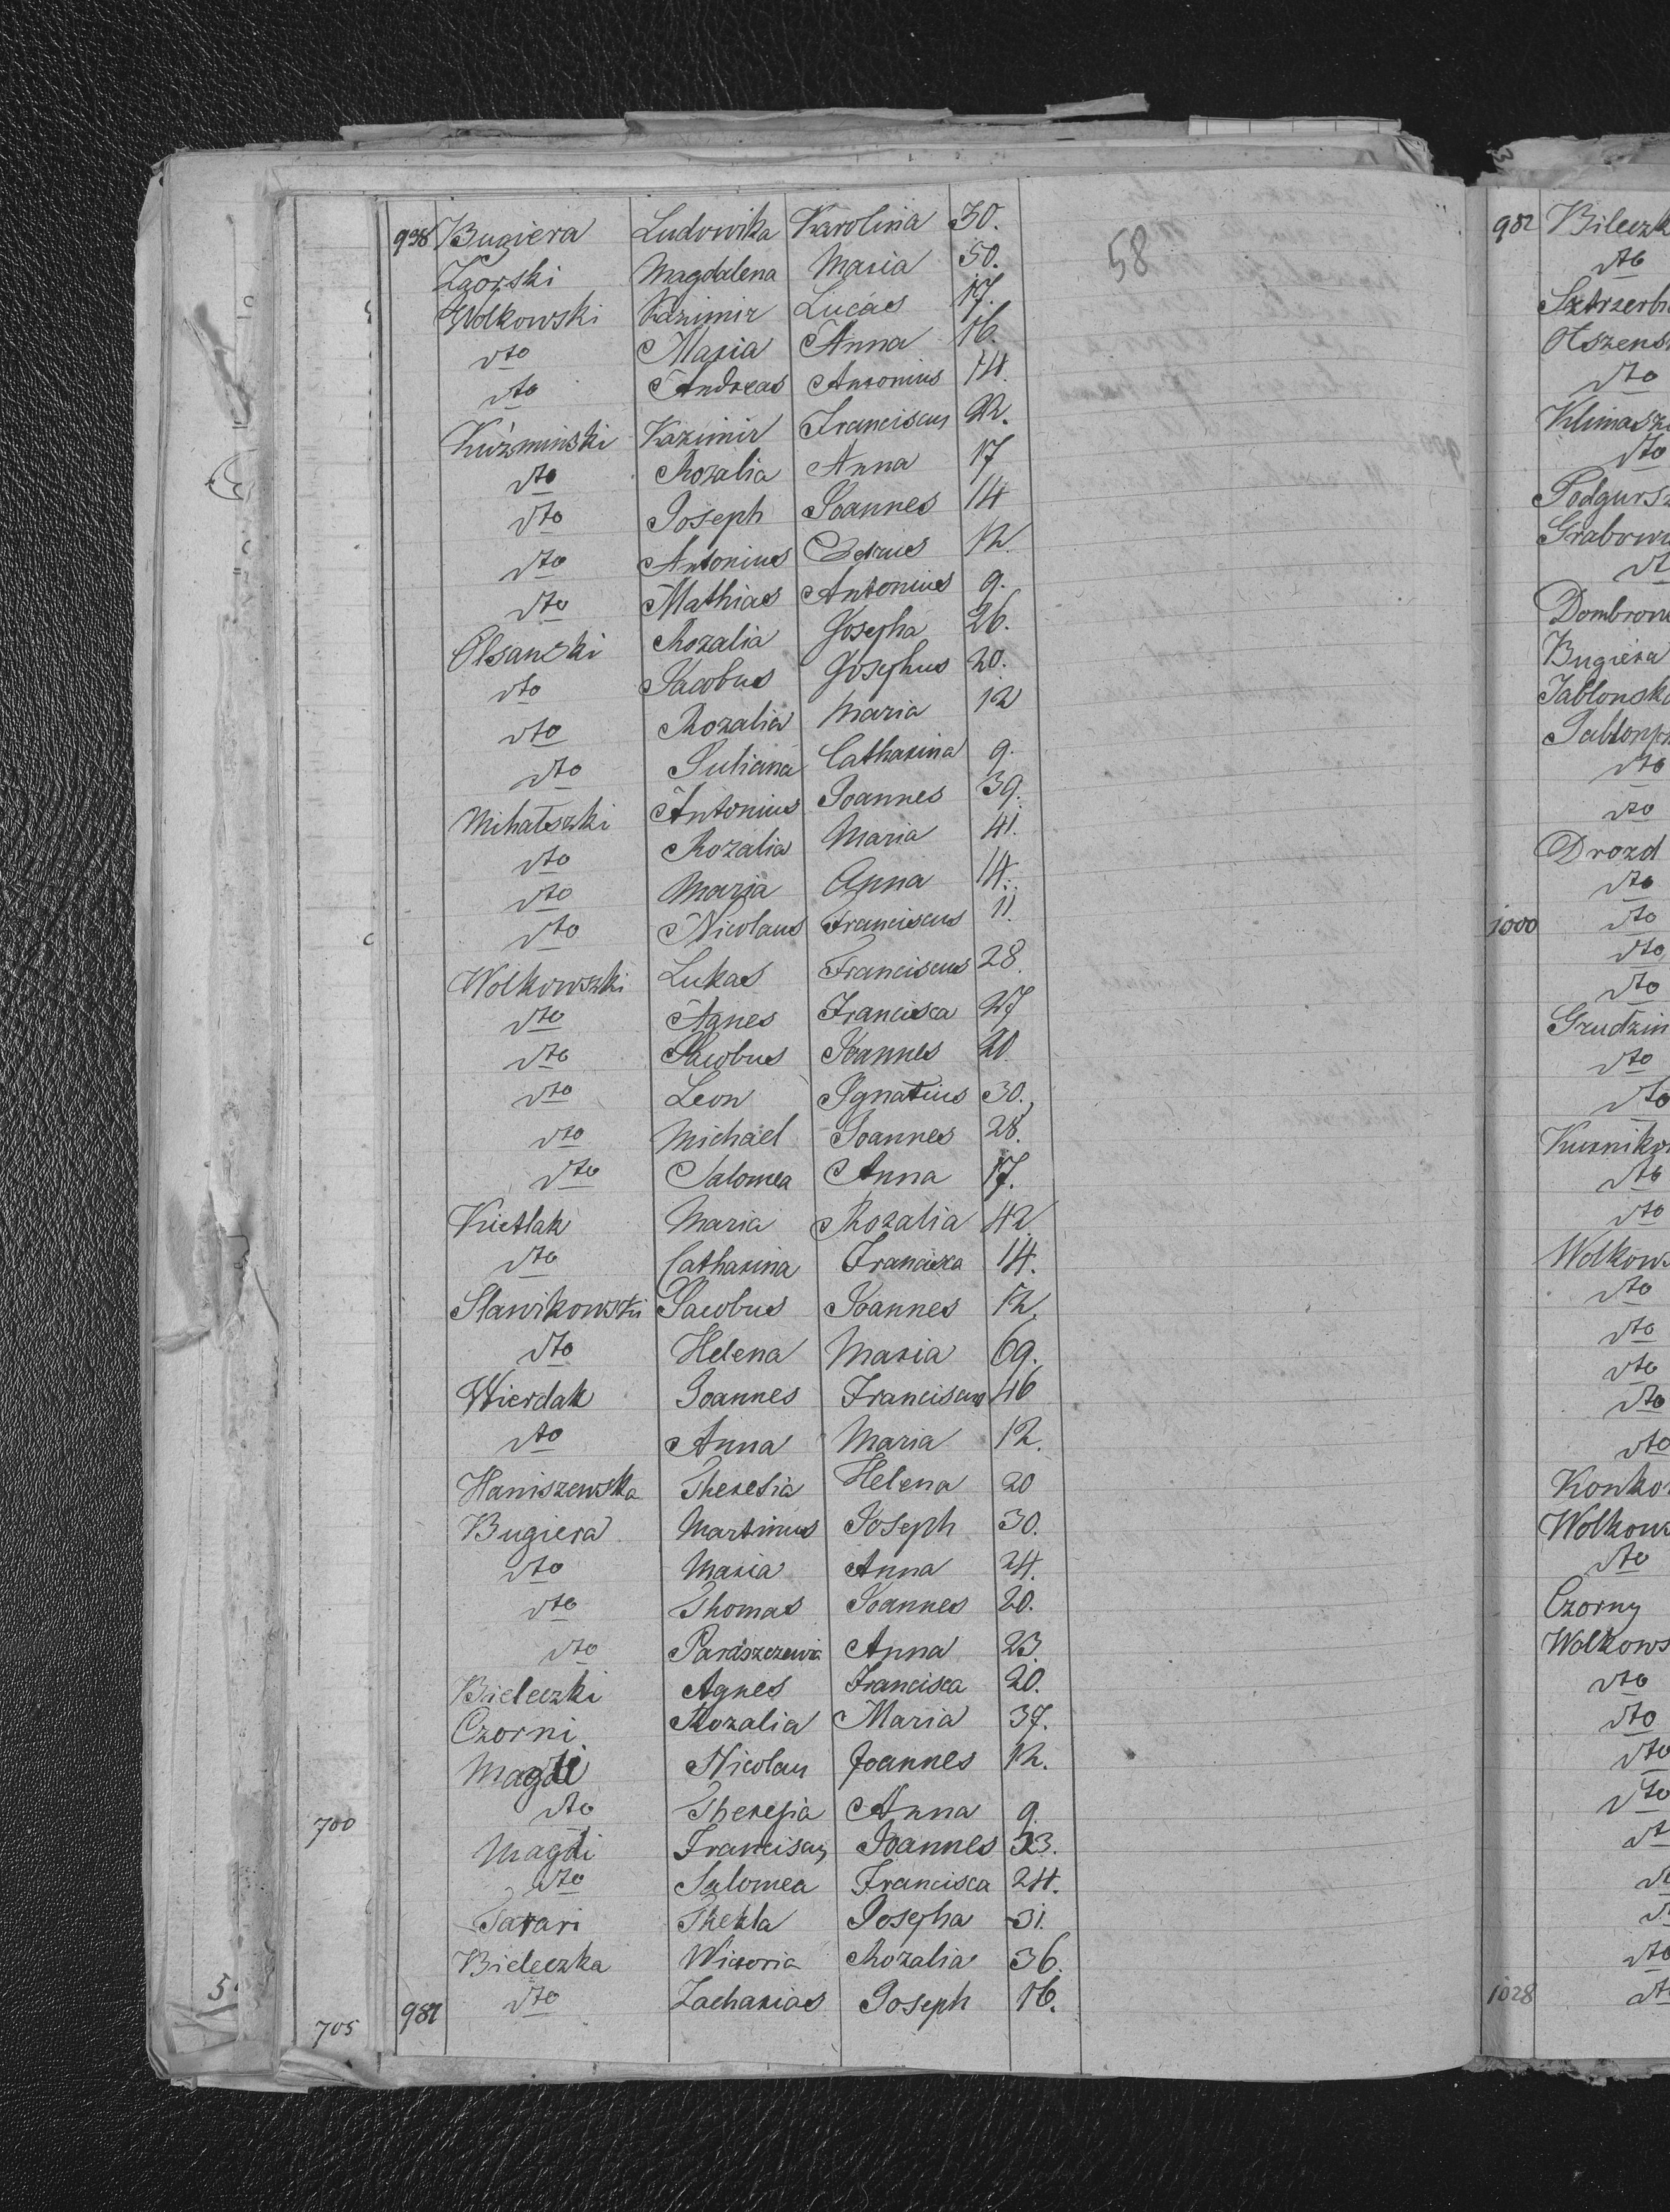 938 Bugiera Ludovika Karolina 30.
Zgorski Magdalena Maria 50.
Wolkowski Kazimir Lucas 17.
dto Maria Anna 16.
dto Andreas Antonius 14.
Kuzminski Kazimir Franciscus 22.
dto Rozalia Anna 17
dto Joseph Joannes 14
dto Antonius Petrus 12.
dto Mathias Antonius 9.
Olsanski Rozalia Josepha 26.
dto Jacobus Josephus 20.
dto Rozalia Maria 12
dto Juliana Catharina 9.
Mihalszki Antonius Joannes 39.
dto Rozalia Maria 41.
dto Maria Anna 14.
dto Nicolaus Franciscus 11.
Wolkowszki Lukas Franciscus 28.
dto Agnes Francisca 27
dto Jacobus Joannes 20
dto Leon Ignatius 30.
dto Michael Joannes 28.
dto Salomea Anna 17.
Kietlak Maria Rozalia 42.
dto Catharina Francisca 14.
Slawikowski Jacobus Joannes 12.
dto Helena Maria 69.
Wierdak Joannes Franciscus 46
dto Anna Maria 12.
Haniszewska Theresia Helena 20
Bugiera Martinus Joseph 30.
dto Maria Anna 24.
dto Thomas Joannes 20.
dto Anna 23.
Bieleczki Agnes Francisca 20.
Czorni Rozalia Maria 37.
Magdi Nicolaus Joannes 12.
700 dto Theresia Anna 9
Magdi Franciscus Joannes 33.
dto Salomea Francisca 24.
Tatari Thekla Josepha 31.
Bieleczka Wictoria Rozalia 36.
981 dto Zacharias Joseph 16.
705
58
982 Bileczk
dto
dto
Klimasz
dto
Podgursz
Grabow
Dombrow
Bugiera
Jablonsk
dto
dto
Drozd
dto
1000 dto
dto
dto
Grudzin
dto
dto
dto
dto
Wolkows
dto
dto
dto
dto
dto
Konko
Wolkow
dto
Czorny
Wolkows
dto
dto
dto
dto
dto
1028